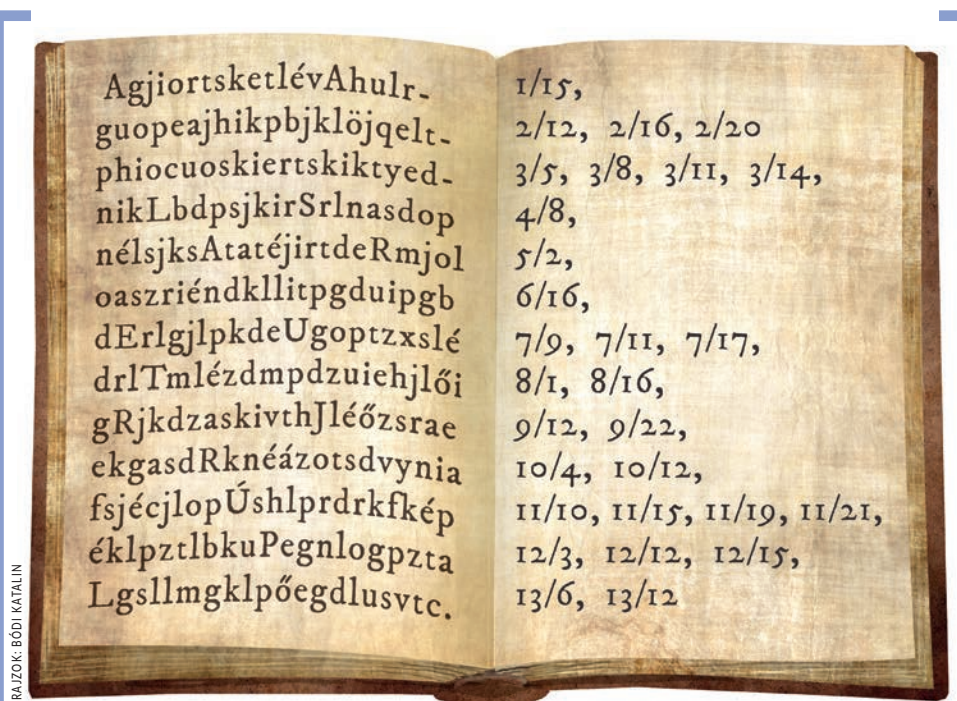 AgjiortsketlévAhulr-
guopeajhikpbjklöjqelt-
phiocuoskiertskiktyed-
nikLbdpsjkirSrlnasdop
nélsjksAtatéjirtdeRmjol
oaszriéndkllitpgduipgb
dErlgjlpkdeUgoptzxslé
drlTmlézdmpdzuiehjlői
gRjkdzaskivthJléőzsrae
ekgasdRknéázotsdvynia
fsjécjlopÚshlprdrkfkép
éklpztlbkuPegnlogpzta
Lgsllmgklpőegdlusvtc.
1/15,
2/12, 2/16, 2/20
3/5, 3/8, 3/11, 3/14,
4/8,
5/2,
6/16,
7/9, 7/11, 7/17,
8/1, 8/16,
9/12, 9/22,
10/4, 10/12,
11/10, 11/15, 11/19, 11/21,
12/3, 12/12, 12/15,
13/6, 13/12
RAJZOK: BÓDI KATALIN